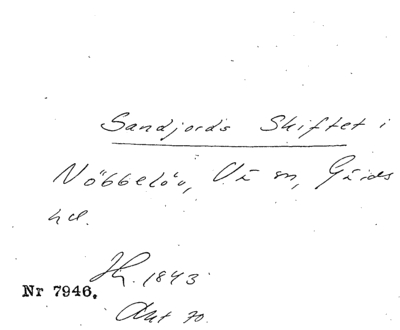 Sandjords Skiftet i
Nöbbelöv, Vä sn, Gärds
hd.
1843
Nr 7946.
Akt 70.